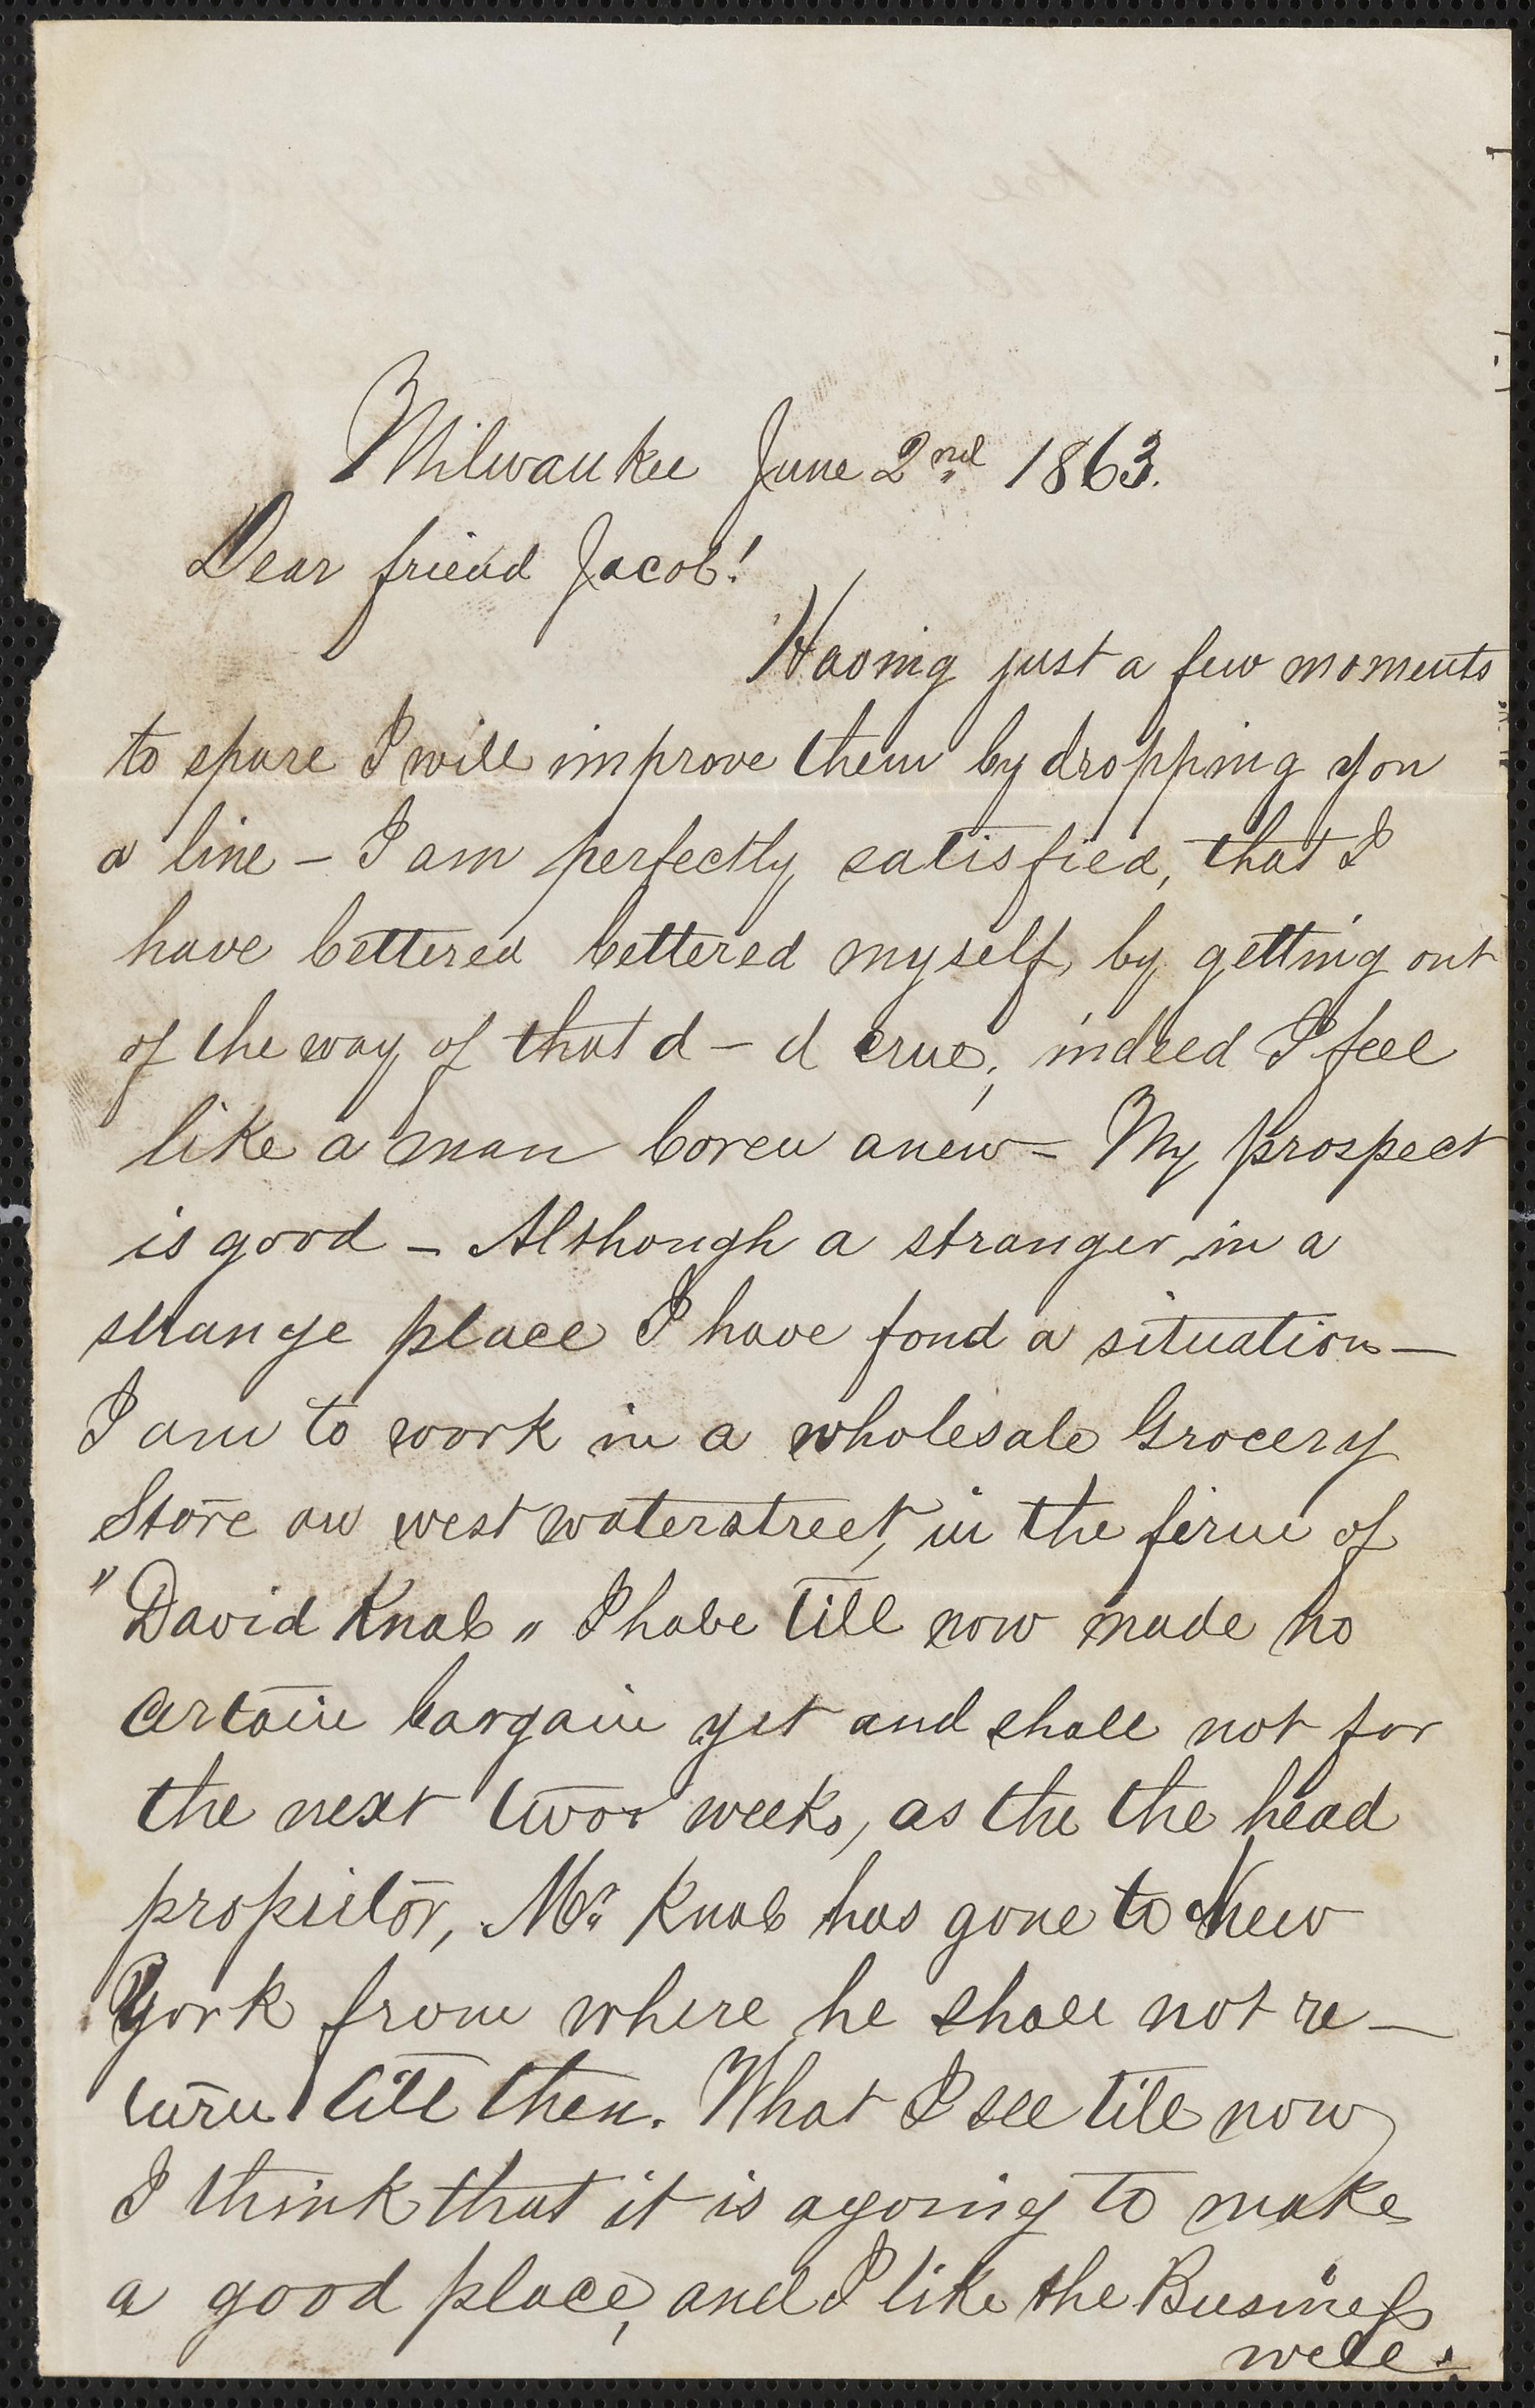 Milwaukee June 2nd 1863.
Dear friend Jacob!
Having just a few moments
to spare I will improve them by dropping you
a line – I am perfectly satisfied, that I
have bettered bettered myself, by getting out
of the way of that d – d crue, indeed I feel
like a man boren anew – My prospect
is good – Although a stranger in a
strange place I have fond a situation –
I am to work in a wholesale Grocery
Store on west waterstreet, in the firm of
"David Knab" I habe till now made no
certain bargain yet and shall not for
the next two weeks, as the the head
proprietor, Mr. Knab has gone to New
York from where he shall not re–
turn till then. What I see till now
I think that it is agoing to make
a good place, and I like the Business
well.